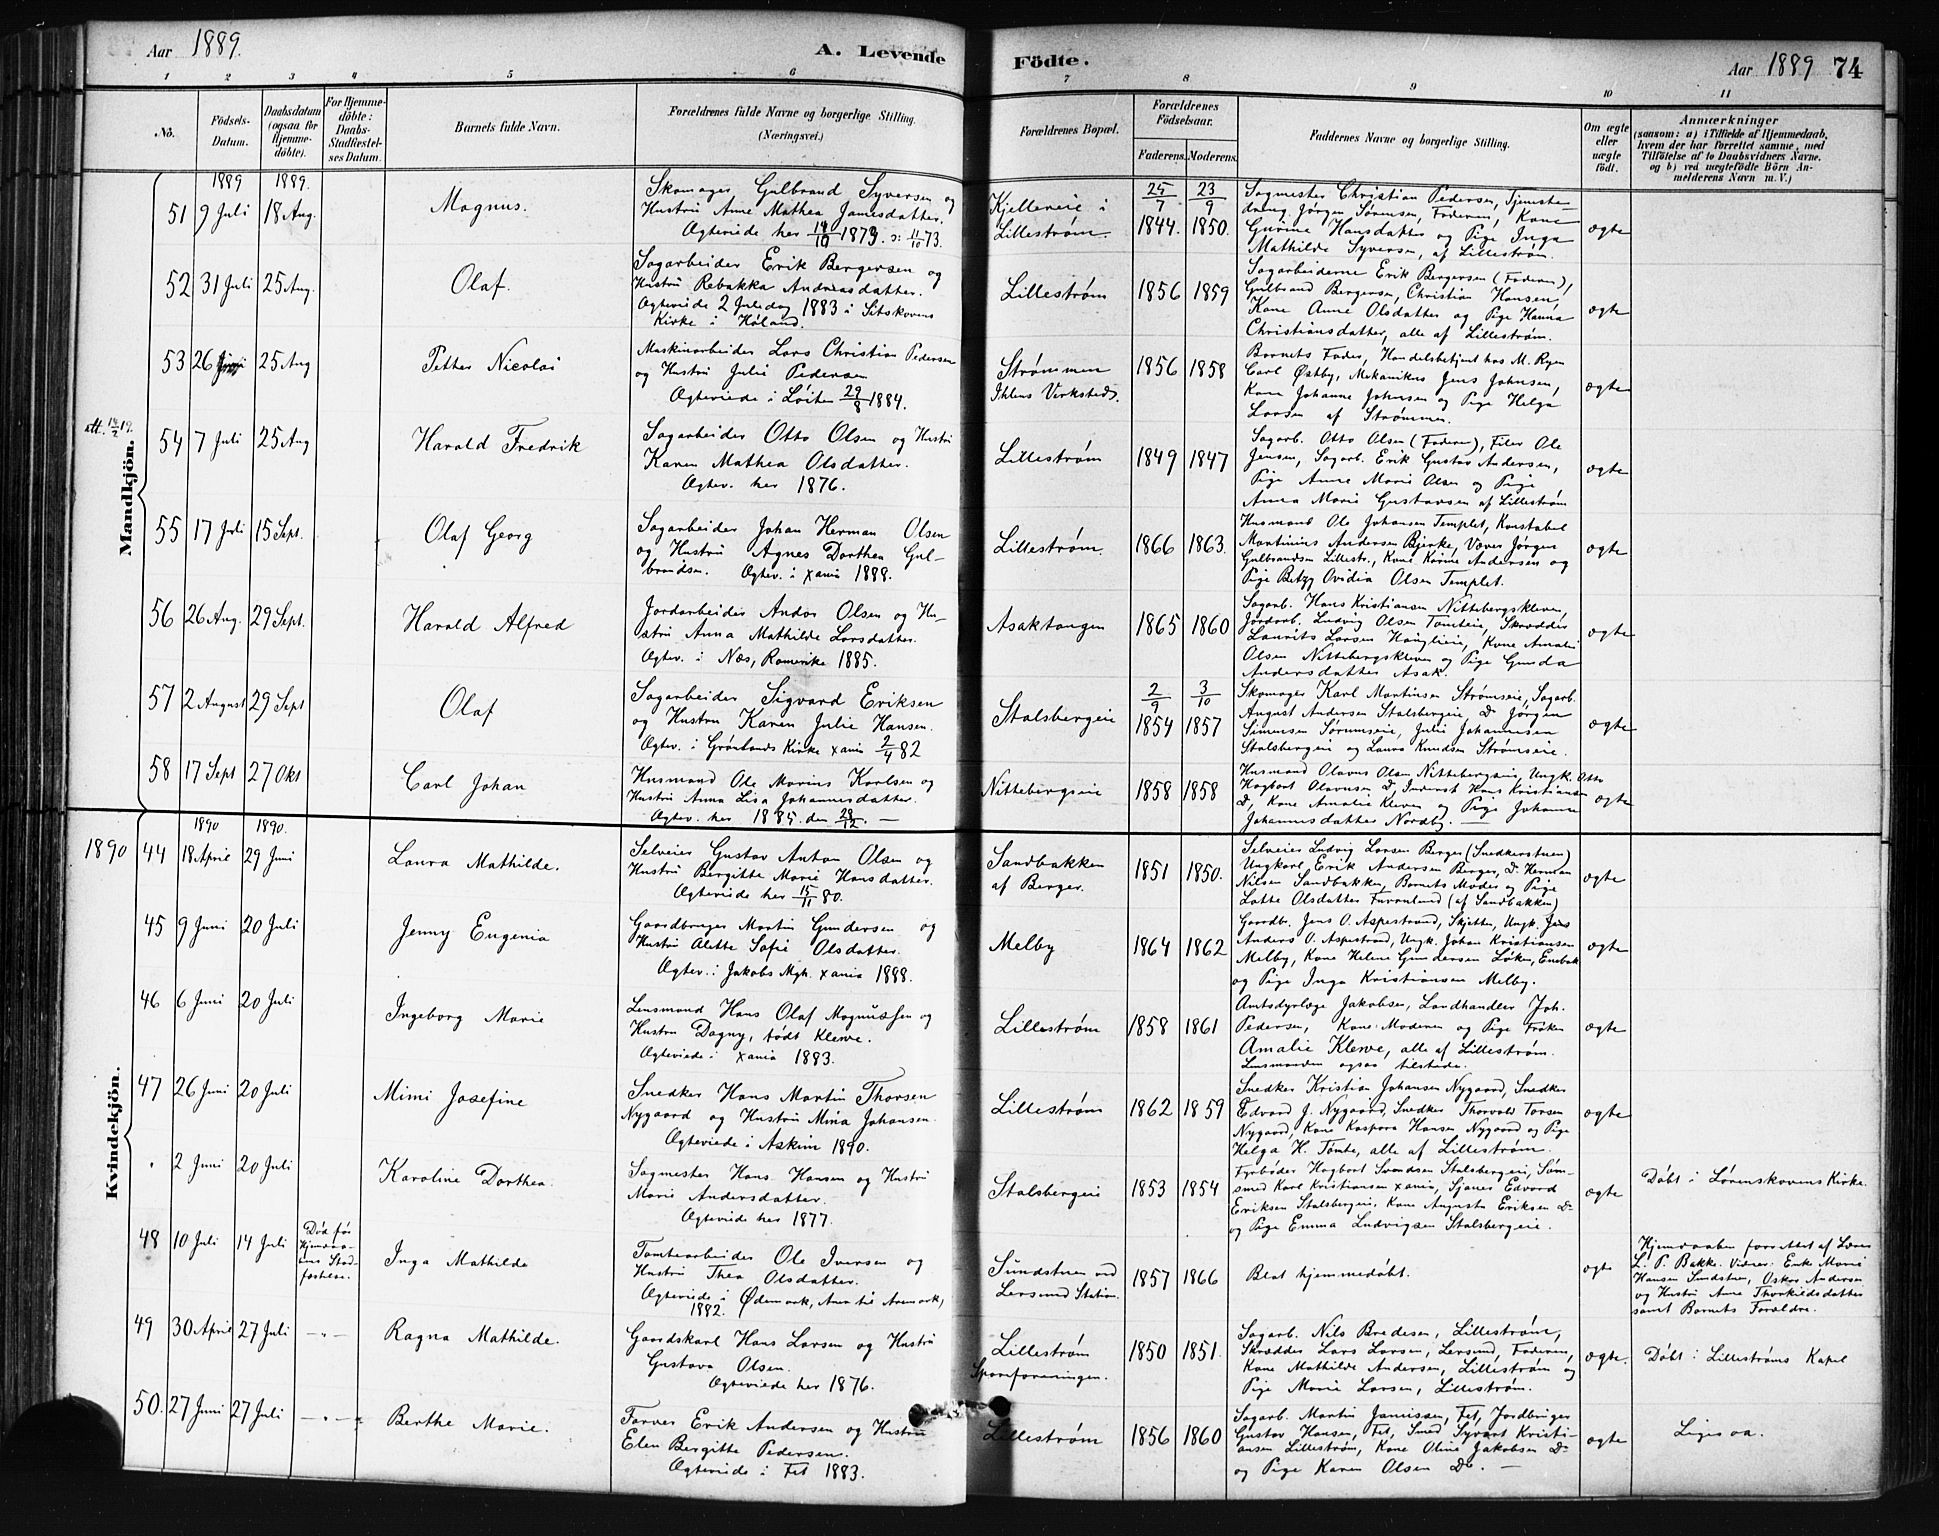 Aar 1889.
A. Levende
Födte.
Aar 1889 74
1 2 3 4 5 6 7 8 9 10 11
No.
Födsels-Datum.
Daabsdatum (ogsaa for Hjemmedöbte).
For Hjemmedöbte: Daabs-Stadfæstelses Datum.
Barnets fulde Navn.
Forældrenes fulde Navne og borgerlige Stilling.
(Næringsvei.)
Forældrenes Bopæl.
Forældrenes Födselsaar.
Faderens. Moderens.
Faddernes Navne og borgerlige Stilling.
Om ægte eller uægte födt.
Anmærkninger
(saasom: a) i Tilfælde af Hjemmedaab,
hvem der har forrettet samme, med
Tilföielse af to Daabsvidners Navne,
og b) ved uægtefödte Börn Anmelderens Navn m. V.)
Mandkjön.
1889 1889.
51 9 Juli 18 Aug. Magnus.
Skomager Gulbrand Syversen og
Hustru Anne Mathea Jamesdatter.
Ægteviede her 14/10 1873. ɔ: 11/10 73.
Kjelleveie i
Lillestrøm.
25/7 1844. 23/9 1850.
Sagmester Christian Pedersen, Tjeneste-
dreng Jörgen Sörensen, Faderen, Kone
Gurine Hansdatter og Pige Inga
Mathilde Syversen, af Lillestrøm.
ægte
52 31 Juli 25 Aug. Olaf.
Sagarbeider Erik Bergersen og
Hustru Rebakka Andreasdatter.
Ægteviede 2 Juledag 1883 i Sitskovens
Kirke i Høland.
Lillestrøm 1856 1859
Sagarbeiderne Erik Bergersen (Faderen),
Gulbrand Bergersen, Christian Hansen,
Kone Anne Olsdatter og Pige Hanna
Christiansdatter, alle af Lillestrøm.
ægte
53 26 Juni 25 Aug Petter Nicolai
Maskinarbeider Lars Christian Pedersen
og Hustru Julie Pedersen
Ægteviede i Løiten 29/8 1884.
Strømmen
Ihlens Verksted.
1856 1858
Barnets Fader, Handelsbetjent hos M. Ryen
Carl Østby, Mekanikus Jens Johnsen,
Kone Johanne Johnsen og Pige Helga
Larsen af Strømmen.
ægte
att. 14/2 19.
54 7 Juli 25 Aug Harald Fredrik
Sagarbeider Otto Olsen og Hustru
Karen Mathea Olsdatter.
Ægtev. her 1876.
Lillestrøm 1849 1847
Sagarb. Otto Olsen (Faderen), Filer Ole
Jensen, Sagarb. Erik Gustav Andersen,
Pige Anne Marie Olsen og Pige
Anna Marie Gustavsen af Lillestrøm
ægte
55 17 Juli 15 Sept. Olaf Georg
Sagarbeider Johan Herman Olsen
og Hustru Agnes Dorthea Gul-
brandsen. Ægtev. i Xania 1888.
Lillestrøm. 1866 1863.
Husmand Ole Johansen Templet, Konstabel
Martinius Andersen Bjerke, Væver Jörgen
Gulbrandsen Lillestr., Kone Karine Andersen og
Pige Betzy Ovidia Olsen Templet.
ægte
56 26 Aug. 29 Sept. Harald Alfred
Jordarbeider Andor Olsen og Hu-
stru Anna Mathilde Larsdatter.
Ægtev. i Næs, Romerike 1885.
Asaktangen 1865 1860
Sagarb. Hans Kristiansen Nittebergskleven,
Jordarb. Ludvig Olsen Tomteie, Skrædder
Laurits Larsen Haugliene, Kone Amalie
Olsen Nittebergskleven og Pige Gunda
Andersdatter Asak.
ægte
57 2 August 29 Sept Olaf
Sagarbeider Sigvard Eriksen
og Hustru Karen Julie Hansen.
Ægtev. i Grønlands Kirke Xania 2/4 82
Stalsbergeie
2/9 1854 3/10 1857
Skomager Karl Martinsen Strømseie, Sagarb.
August Andersen Stalsbergeie, Do Jörgen
Simensen Sørumseie, Julie Johannesen
Stalsbergeie og Laura Knudsen Strømseie.
ægte
58 17 Sept 27 Okt Carl Johan
Husmand Ole Marius Karlsen og
Hustru Anna Lisa Johannesdatter.
Ægtev. her 1885 den 28/12. —
Nittebergseie 1858 1858
Husmand Olavus Olsen Nittebergseie, Ungk. Otto
Hagbart Olavusen Do, Inderst Hans Kristiansen
Do, Kone Amalie Kleven og Pige Johanne
Johannesdatter Nordby. —
ægte
Kvindekjön.
1890 1890 1890.
44 18 April 29 Juni Laura Mathilde.
Selveier Gustav Anton Olsen og
Hustru Bergitte Marie Hansdatter.
Ægteviede her 15/11 80.
Sandbakken
af Berger.
1851 1850.
Selveier Ludvig Larsen Berger (Snedkerstuen)
Ungkarl Erik Andersen Berger, Do Herman
Nilsen Sandbakken, Barnets Moder og Pige
Lotte Olsdatter Furunlund (af Sandbakken)
ægte
45 9 Juni 20 Juli Jenny Eugenia
Gaardbruger Martin Gundersen og
Hustru Alette Sofie Olsdatter.
Ægtev. i Jakobs Mgh. Xania 1888.
Melby 1864 1862
Gaardb. Jens O. Aspestrand, Skjetten, Ungk. Jens
Anders O. Aspestrand, Ungk. Johan Kristiansen
Melby, Kone Helene Gundersen Løken, Enebak
og Pige Inga Kristiansen Melby.
ægte
46 6 Juni 20 Juli Ingeborg Marie
Lensmand Hans Olaf Magnussen og
Hustru Dagny, født Klewe.
Ægteviede i Xania 1883.
Lillestrøm 1858 1861
Amtsdyrlæge Jakobsen, Landhandler Joh.
Pedersen, Kone: Moderen og Pige Frøken
Amalie Klewe, alle af Lillestrøm.
Lensmanden ogsaa tilstede.
ægte
47 26 Juni 20 Juli Mimi Josefine
Snedker Hans Martin Thorsen
Nygaard og Hustru Mina Johansen.
Ægteviede i Askim 1890.
Lillestrøm 1862 1859
Snedker Kristian Johansen Nygaard, Snedker
Edvard J. Nygaard, Snedker Thorvald Torsen
Nygaard, Kone Kaspara Hansen Nygaard og Pige
Helga H. Tømte, alle af Lillestrøm.
ægte
" 2 Juni 20 Juli Karoline Dorthea.
Sagmester Hans Hansen og Hustru
Marie Andersdatter.
Ægteviede her 1877.
Stalsbergeie 1853 1854
Fyrbøder Hagbart Svendsen Stalsbergeie, Søm-
smed Karl Kristiansen Xania, Sjauer Edvard
Eriksen Stalsbergeie, Kone Augusta Eriksen Do
og Pige Emma Ludvigsen Stalsbergeie.
ægte
Døbt i Lørenskovens Kirke.
48 10 Juli 14 Juli
Død før
Hjemmedaa-
bens Stad-
fæstelse.
Inga Mathilde
Tomtearbeider Ole Iversen og
Hustru Thea Olsdatter.
Ægteviede i Ødemark, Anex til Aremark,
1882.
Sundstuen ved
Lersund Station.
1857 1866
Blot hjemmedøbt.
ægte
Hjemmedaaben forrettet af Lærer
L. P. Bakke. Vidner: Enke Marie
Hansen Sundstuen, Oskar Andersen
og Hustru Anne Thorkildsdatter
samt Barnets Forældre.
49 30 April 27 Juli — " — Ragna Mathilde.
Gaardskarl Hans Larsen og Hustru
Gustava Olsen.
Ægteviede her 1876.
Lillestrøm
Spareforeningen.
1850 1851.
Sagarb. Nils Bredesen, Lillestrøm,
Skrædder Lars Larsen, Lersund, Faderen,
Kone Mathilde Andersen, Lillestrøm og
Pige Marie Larsen, Lillestrøm.
ægte.
Døbt i Lillestrøms Kapel
50. 27 Juni 27 Juli — " — Berthe Marie.
Farver Erik Andersen og Hustru
Elen Bergitte Pedersen.
Ægteviede i Fet 1883.
Lillestrøm 1856 1860
Sagarb. Martin Jamissen, Fet, Jordbruger
Gustav Hansen, Fet, Smed Syvart Kristi-
ansen Lillestrøm, Kone Oline Jakobsen Do
og Pige Karen Olsen Do. —
ægte
Ligesaa.